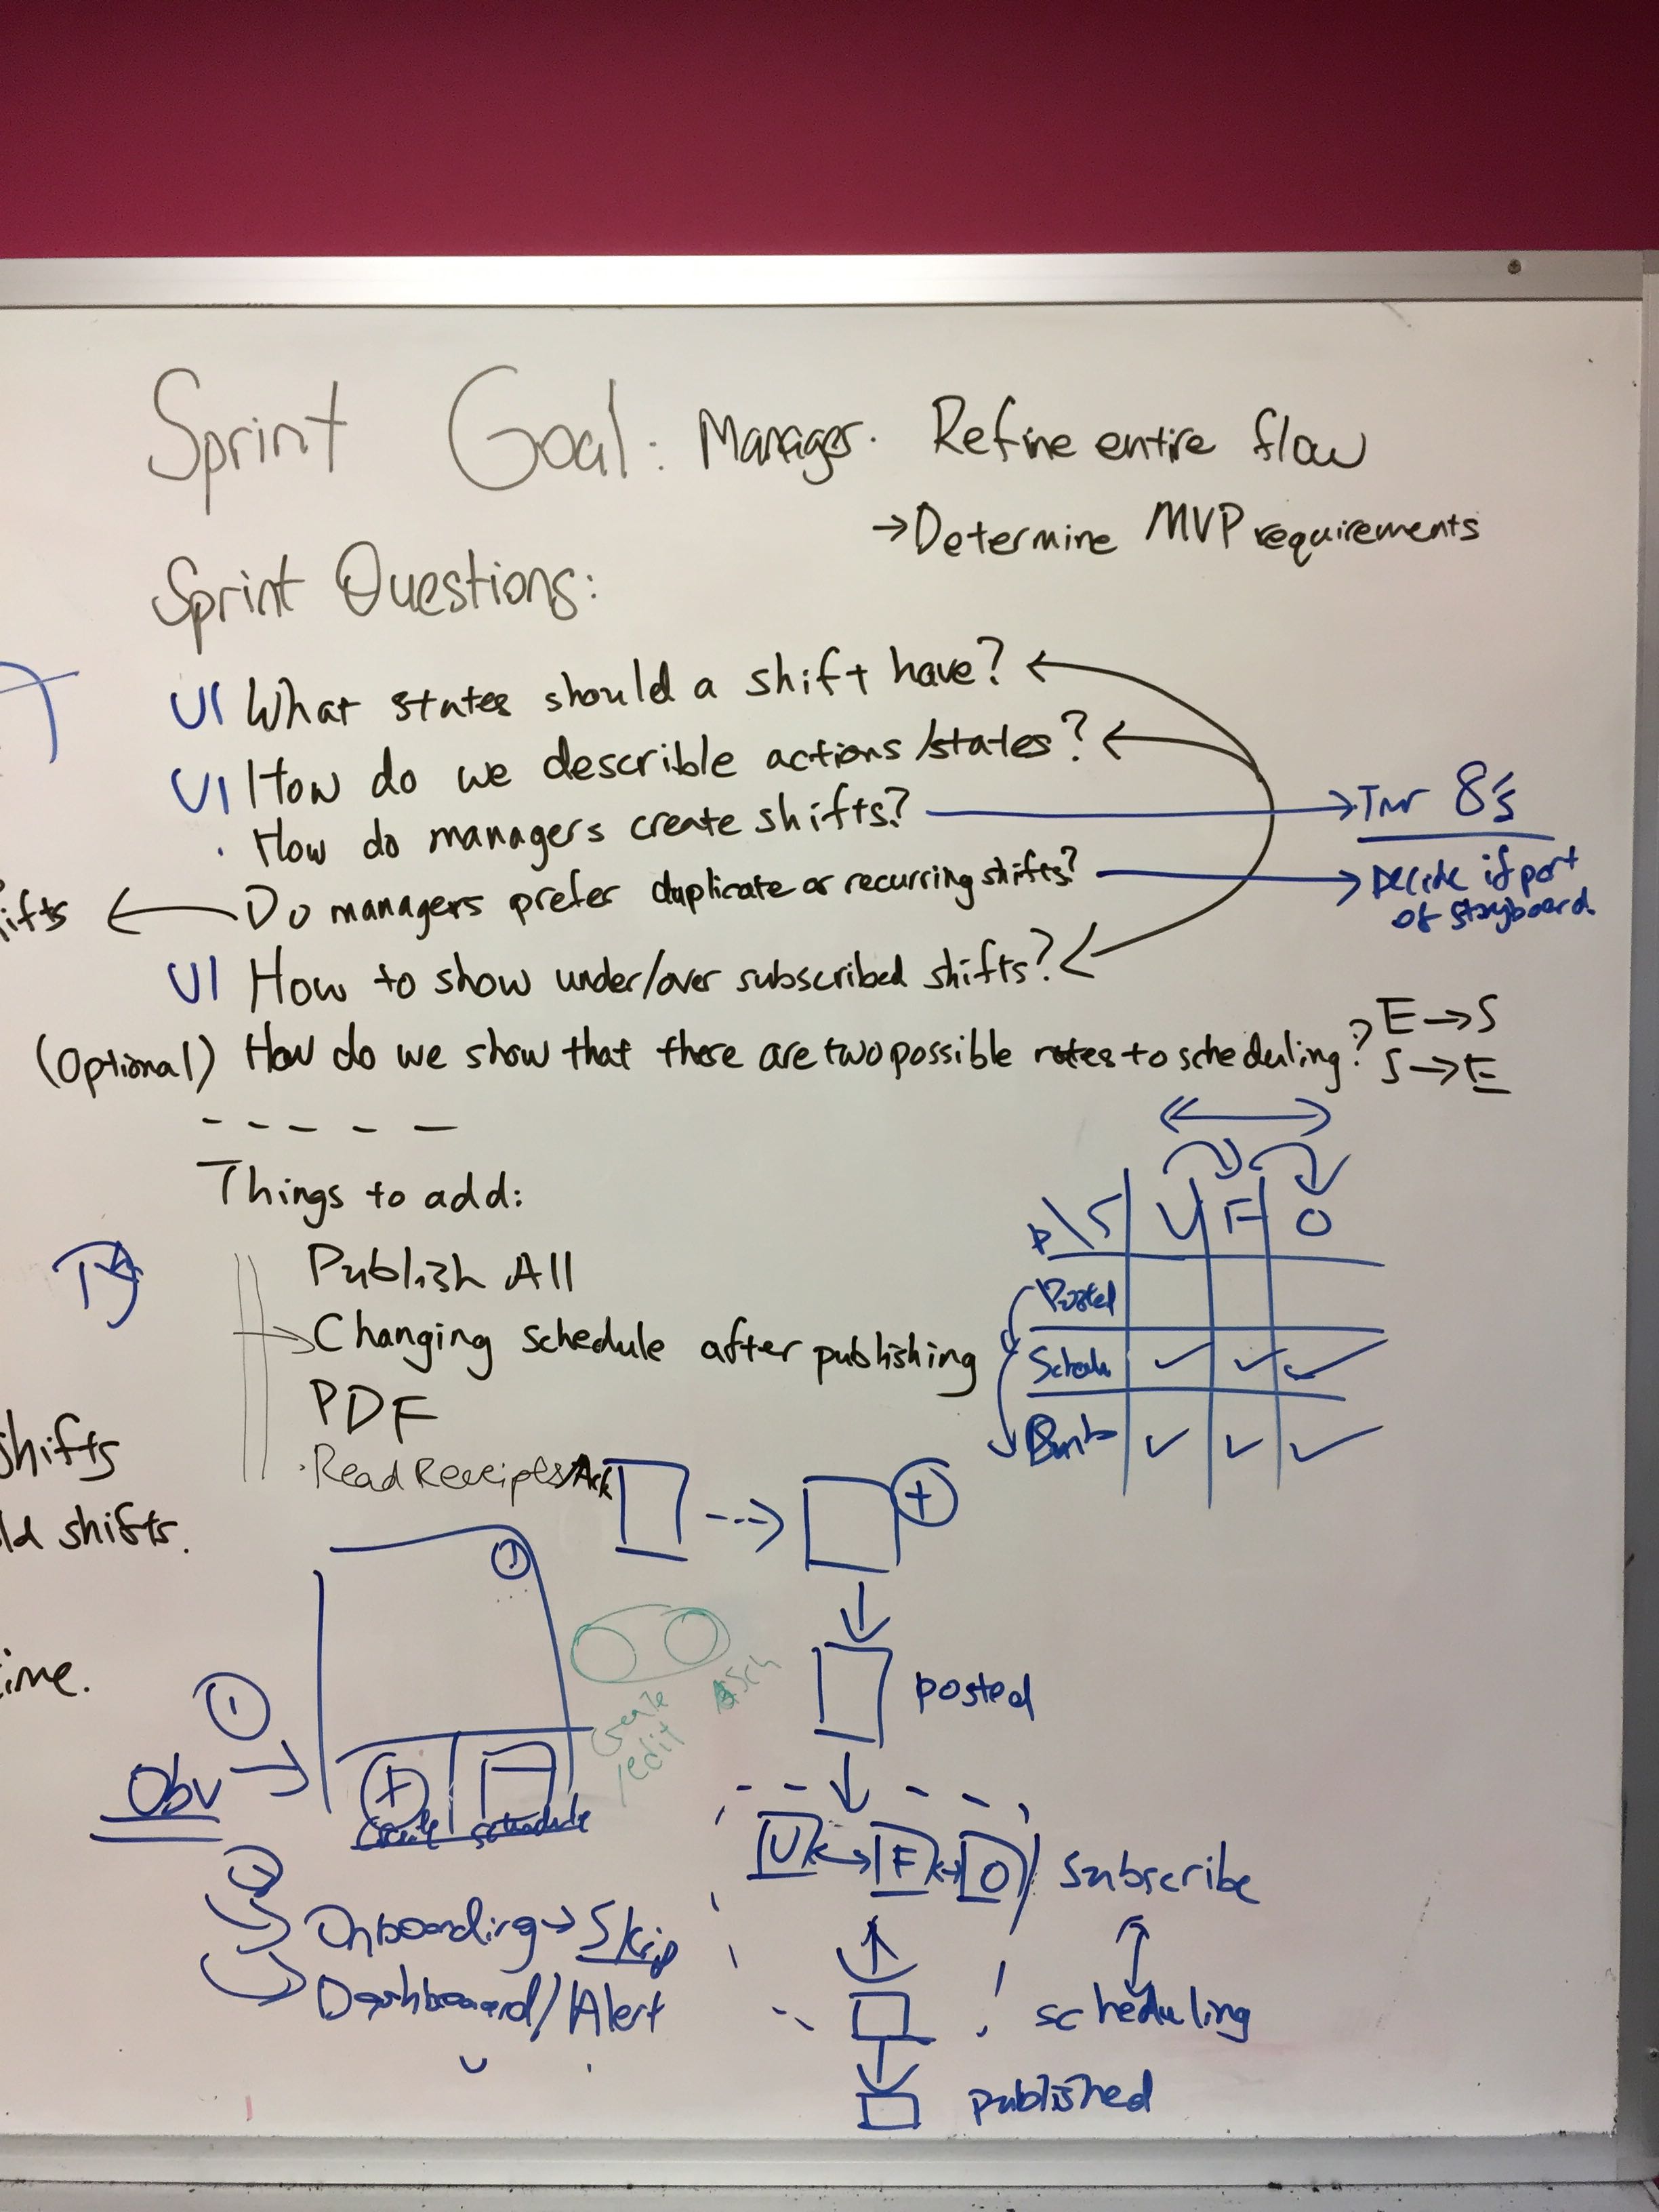 Sprint Goal: Manager. Refine entire flow
→Determine MVP requirements
Sprint Questions:
UI What states should a shift have?
UI How do we describle actions/states?
· How do managers create shifts? → Tmr 8's
ifts ← Do managers prefer duplicate or recurring shifts? → Decide if part
of storyboard
UI How to show under/over subscribed shifts?
(Optional) How do we show that there are two possible rotes to scheduling? E→S
S→E
Things to add:
P\S U F O
Publish All
Posted
Changing schedule after publishing
PDF
shifts
·Read Receipts/Ack
ld shifts.
+
ime.
1
Create
/edit
posted
Obv
+
Create schedule
U F O subscribe
Onboarding→Skip
Dashboard/Alert
scheduling
published